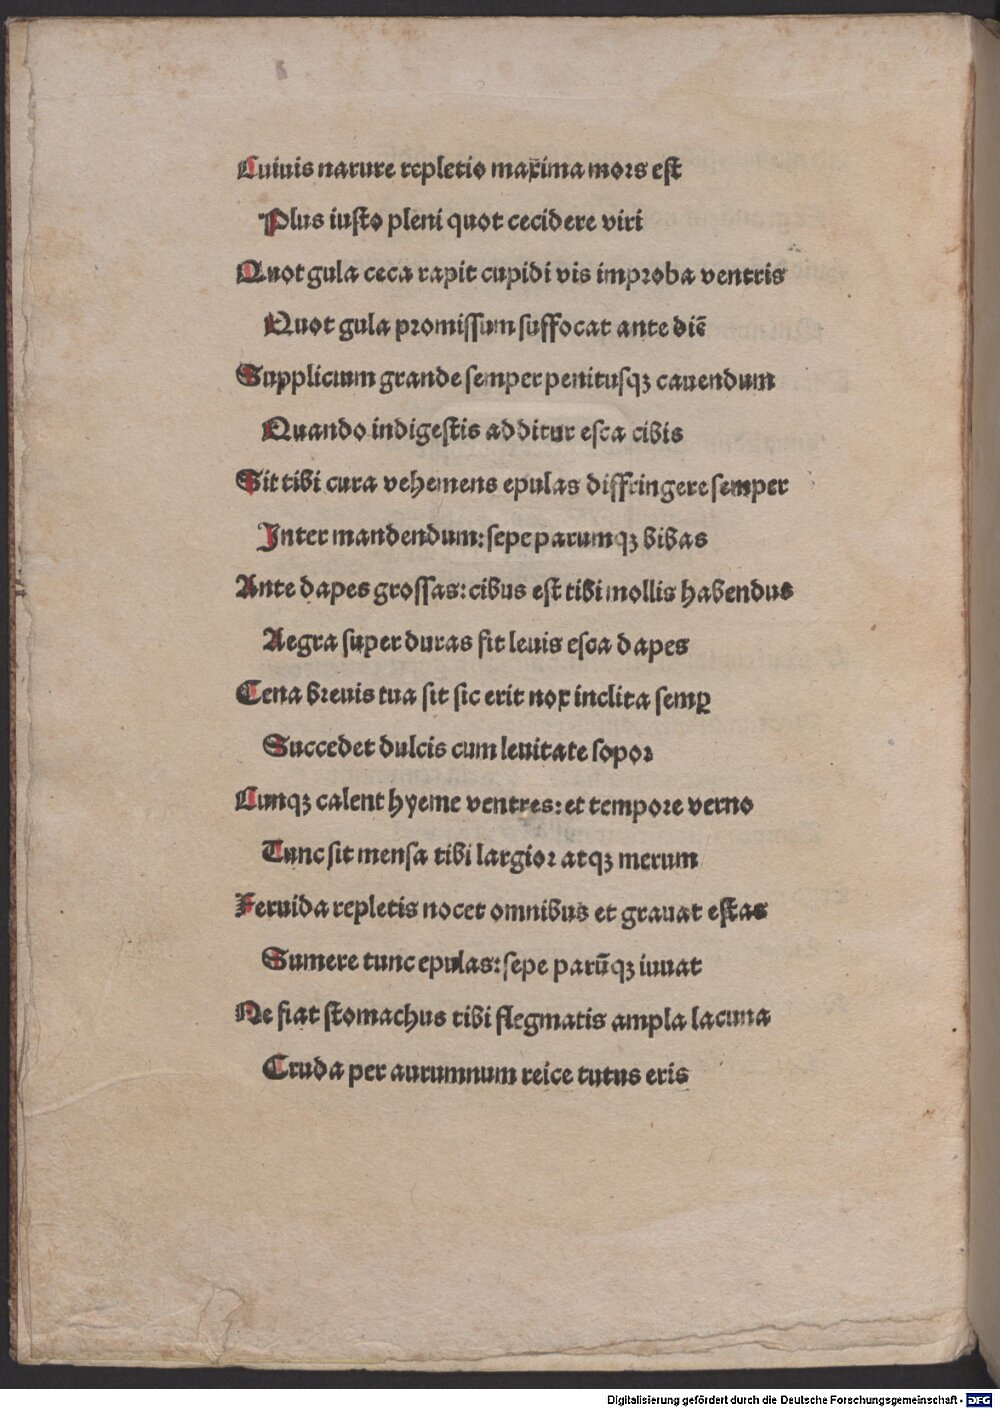 Cuiuis nature repletio maxima mors est
Plus iusto pleni quot cecidere viri
Quot gula ceca rapit cupidi vis improba ventris
Quot gula promissum suffocat ante diē
Supplicium grande semper penitusqꝫ cauendum
Quando indigestis additur esca cibis
Sit tibi cura vehemens epulas diffringere semper
Inter mandendum: sepe parumqꝫ bibas
Ante dapes grossas: cibus est tibi mollis habendus
Aegra super duras sit leuis esca dapes
Cena breuis tua sit sic erit nox inclita semꝑ
Succedet dulcis cum leuitate sopor
Cunqꝫ calent hyeme ventres: et tempore verno
Tunc sit mensa tibi largior atqꝫ merum
Feruida repletis nocet omnibus et grauat estas
Sumere tunc epulas: sepe parūqꝫ iuuat
Ne fiat stomachus tibi flegmatis ampla lacuna
Cruda per autumnum reice tutus eris
Digitalisierung gefördert durch die Deutsche Forschungsgemeinschaft - DFG